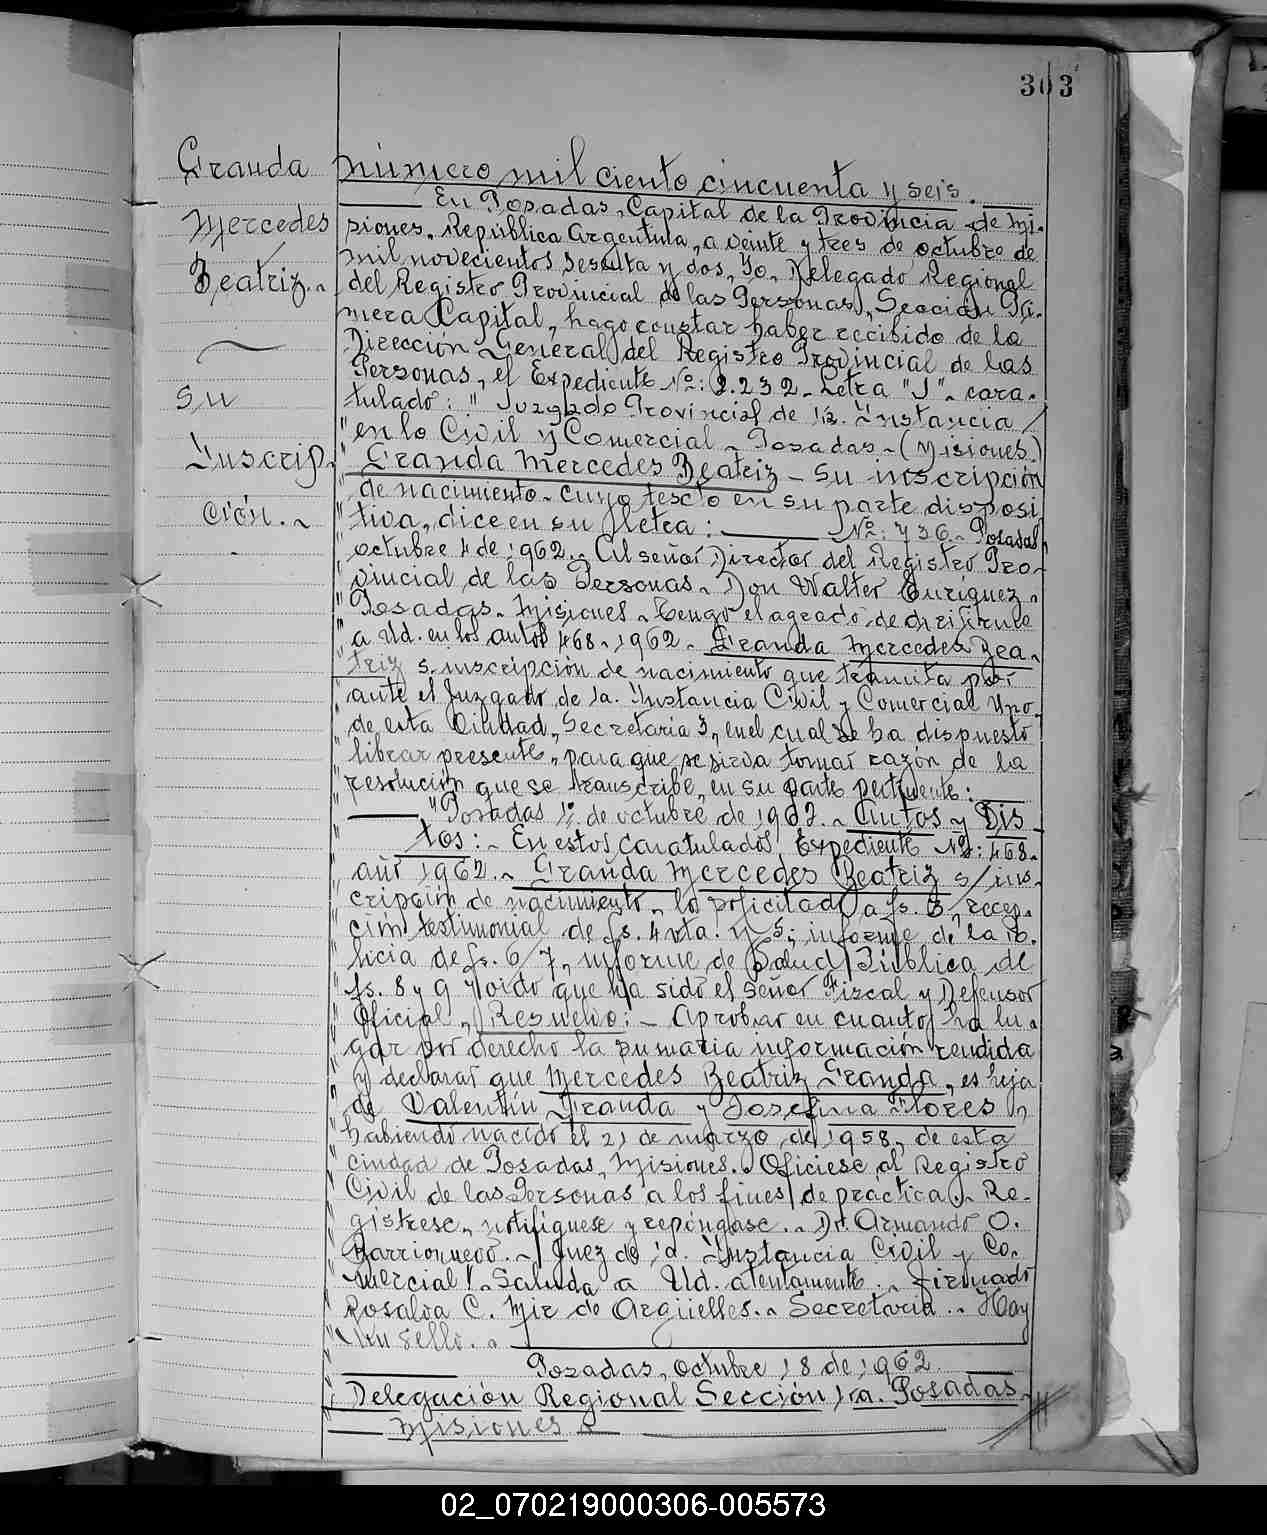 303
Granda
Mercedes
Beatriz.-
Su
Inscrip
ción.-
Número mil ciento cincuenta y seis.
En Posadas, Capital de la Provincia de Mi-
siones, República Argentina, a veinte y tres de octubre de
mil novecientos sesenta y dos, Yo, Delegado Regional
del Registro Provincial de las Personas, Sección Pri-
mera Capital, hago constar haber recibido de la
Dirección General del Registro Provincial de las
Personas, el Expediente No: 2.232- Letra "J"- cara-
tulado: "Juzgado Provincial de 1a. Instancia/
"en lo Civil y Comercial- Posadas-(Misiones)
" Granda Mercedes Beatriz - Su inscripción
" de nacimiento- cuyo texto en su parte disposi
" tiva, dice en su letra: No: 736.- Posadas,
" octubre 4 de 1962.- Al señor Director del Registro Pro-
" vincial de las Personas- Don Walter Enriquez-
" Posadas- Misiones- Tengo el agrado de dirigirme
" a Ud. en los autos 468-1962- Granda Mercedes Bea-
" triz s. inscripción de nacimiento que tramita por
" ante el Juzgado de 1a. Instancia Civil y Comercial Uno
" de esta Ciudad, Secretaria 3, en el cual se ha dispuesto
" librar presente, para que se sirva tomar razón de la
" resolución que se transcribe, en su parte pertinente:
" "Posadas 1o de octubre de 1962.- Autos y Vis
" tos:- En estos caratulados Expediente No: 468-
" año 1962.- Granda Mercedes Beatriz s/ins-
" cripción de nacimiento, lo solicitado a fs. 3, recep-
" ción testimonial de fs. 4 vta. y 5; informe de la Po-
" licia de fs. 6/7, informe de Salud Pública de
" fs. 8 y 9 y oido que ha sido el señor Fiscal y Defensor
" Oficial, Resuelvo:- Aprobar en cuanto ha lu-
" gar por derecho la sumaria información rendida
" y declarar que Mercedes Beatriz Granda, es hija
" de Valentín Granda y Josefina Flores,
" habiendo nacido el 21 de marzo de 1958, de esta
" ciudad de Posadas, Misiones.- Oficiese al Registro
" Civil de las Personas a los fines de práctica.- Re-
" gistrese, notifiquese y repóngase.- Dr. Armando O.
" Barrionuevo.- Juez de 1a. Instancia Civil y Co-
" mercial".- Saluda a Ud. atentamente.- Firmado
" Rosalva C. Mir de Argüelles.- Secretaria.- Hay
" un sello.-
Posadas, Octubre 18 de 1962.
Delegación Regional Sección 1ra. Posadas-
Misiones
02_070219000306-005573